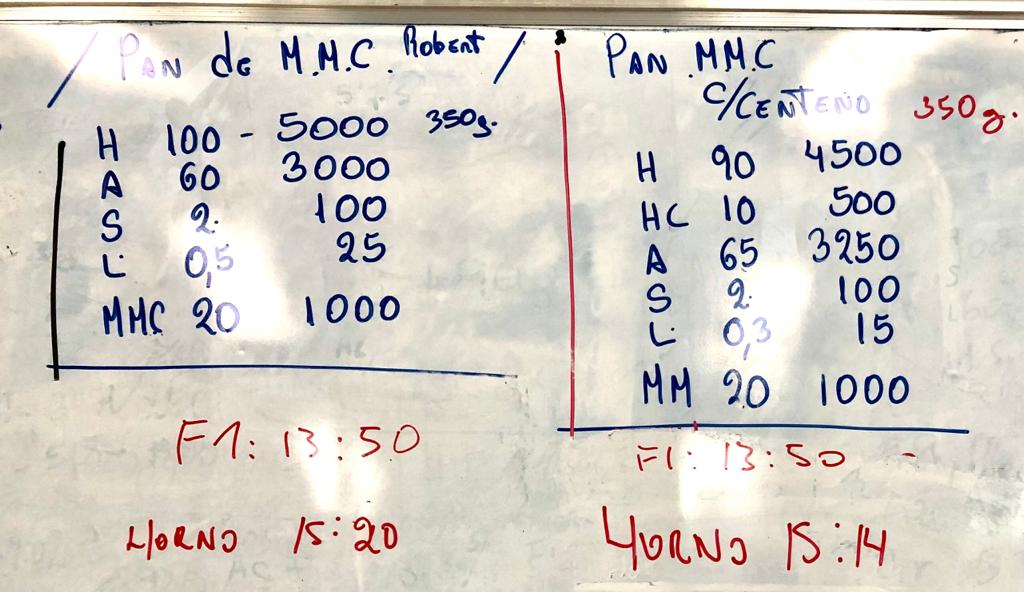 / PAN de M.M.C. Robert /
H 100 - 5000 350g.
A 60 3000
S 2. 100
L 0,5 25
MMC 20 1000
F1: 13:50
HORNO 15:20
PAN MMC
C/CENTENO 350g.
H 90 4500
HC 10 500
A 65 3250
S 2. 100
L 0,3 15
MM 20 1000
F1: 13:50 -
HORNO 15:14